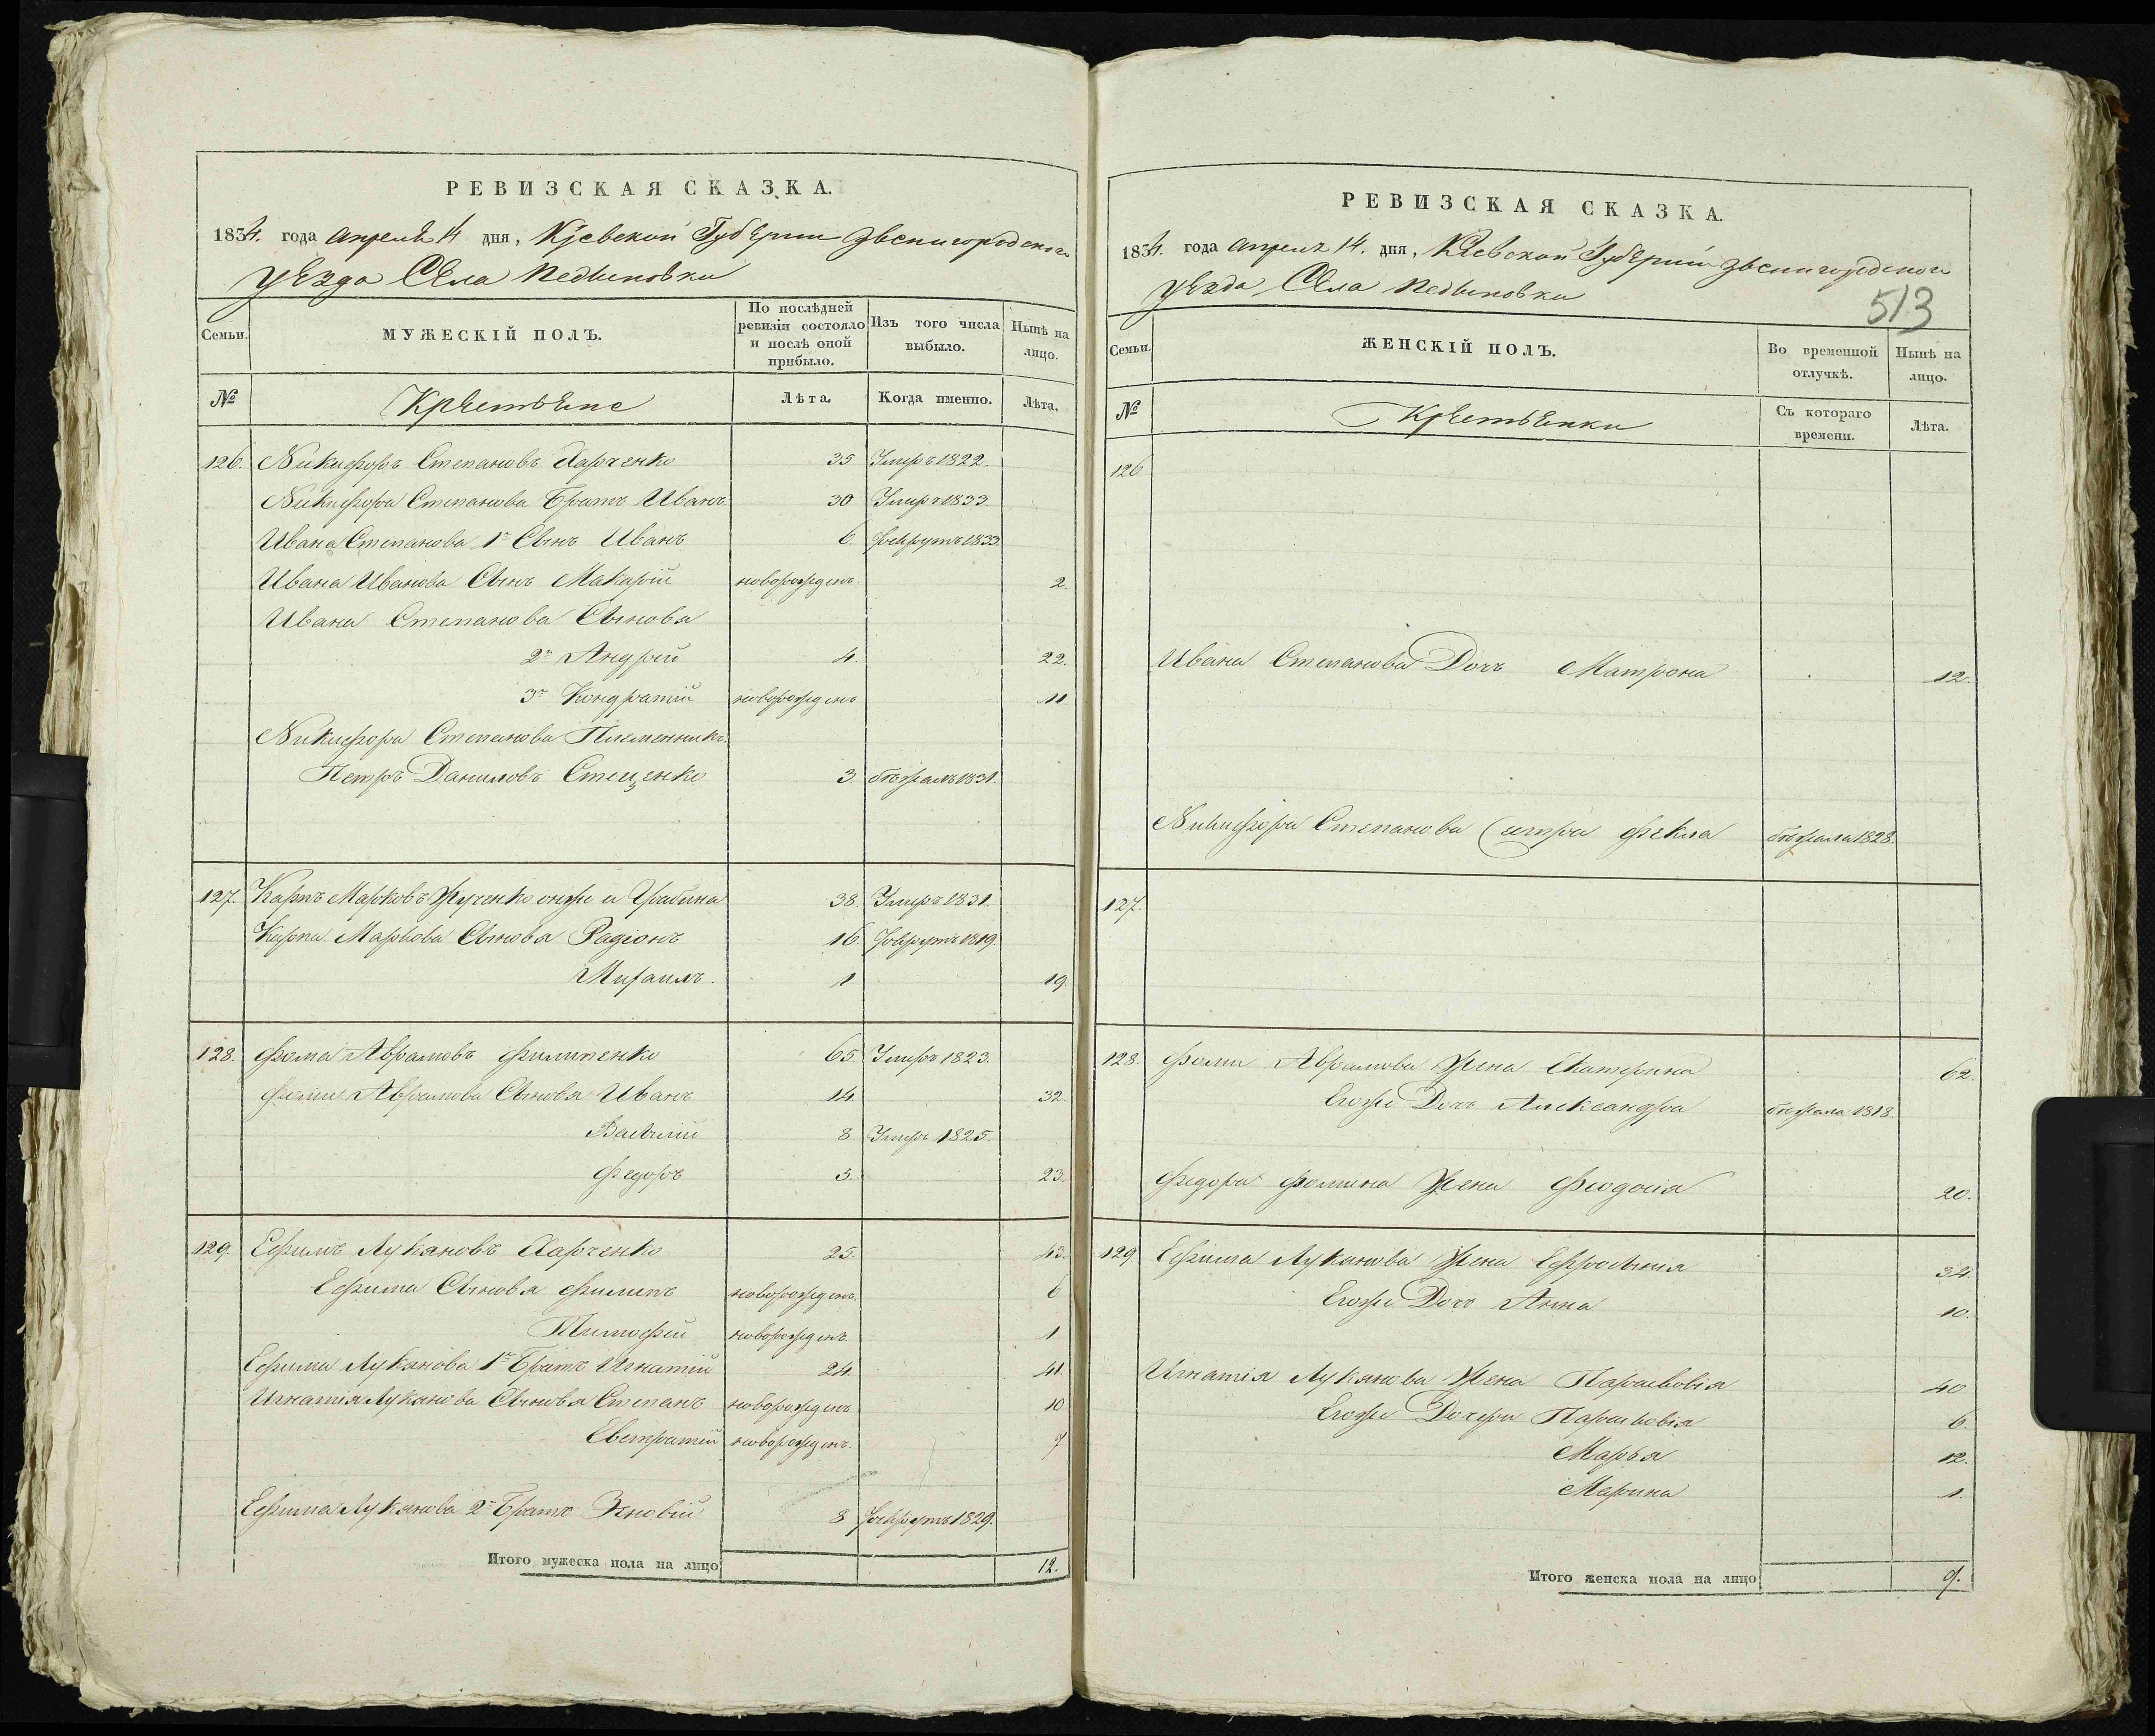 РЕВИЗСКАЯ СКАЗКА.
1834. года Апреля 14 дня, Кіевской Губернии Звенигородского
уезда Села Педыновки
Семьи.
МУЖЕСКІЙ ПОЛЪ.
По послѣдней ревизіи состояло и послѣ оной прибыло.
Изъ того числа выбыло.
Нынѣ на лицо.
№
Крестьяне
Лѣта.
Когда именно.
Лѣта.
126. Никифоръ Степановъ Харченко 35 Умеръ 1822.
Никифора Степанова Братъ Иванъ 30 Умеръ 1833.
Ивана Степанова 1й Сынъ Иванъ 6. Рекрутъ 1833
Ивана Иванова Сынъ Макарій новорожденъ. 2.
Ивана Степанова Сыновья
2й Андрей 4. 22.
3й Кондратій новорожденъ 11.
Никифора Степанова Племенникъ.
Петръ Даниловъ Стеценко 3. бѣжалъ 1831.
127. Карпъ Марковъ онже и 38. Умеръ 1831.
Карпа Маркова Сыновья Радіонъ 16. Рекрутъ 1819.
Михаилъ. 1 19.
128. Фома Аврамовъ Филипенко 65. Умеръ 1823.
Фомы Аврамова Сыновья Иванъ 14 32.
Василій 8 Умеръ 1825.
Федоръ 5. 23.
129. Ефимъ Лукяновъ Харченко 25. 43.
Ефима Сыновья Филипъ новорожденъ. 6
Тимофей новорожденъ 1
Ефима Лукянова 1й Братъ Игнатій 24. 41.
Игнатія Лукянова Сыновья Степанъ новорожденъ 10
Евстратій новорожденъ. 7
Ефима Лукянова 2й Братъ Зѣновій 8 Рекрутъ 1829.
Итого мужеска пола на лицо 12.
РЕВИЗСКАЯ СКАЗКА.
1834. года Апреля 14. дня, Кіевской Губерніи Звенигородского
уезда, Села Педыновки
513
Семьи.
ЖЕНСКІЙ ПОЛЪ.
Во временной отлучкѣ.
Нынѣ на лицо.
№
Крестьянки
Съ котораго времени.
Лѣта.
126
Ивана Степанова Дочь Матрона 12.
Никифора Степанова Сестра Фекла бѣжала 1828.
127.
128 Фомы Аврамова Жена Екатерина 62.
Егоже Дочь Александра бежала 1818.
Федора Фомина Жена Феодосія 20.
129 Ефима Лукянова Жена Ефросинія 34
Егоже Дочь Анна 10.
Игнатія Лукянова Жена Парасковія 40.
Егоже Дочери Парасковія 6.
Марья 12.
Марина 1.
Итого женска пола на лицо 9.